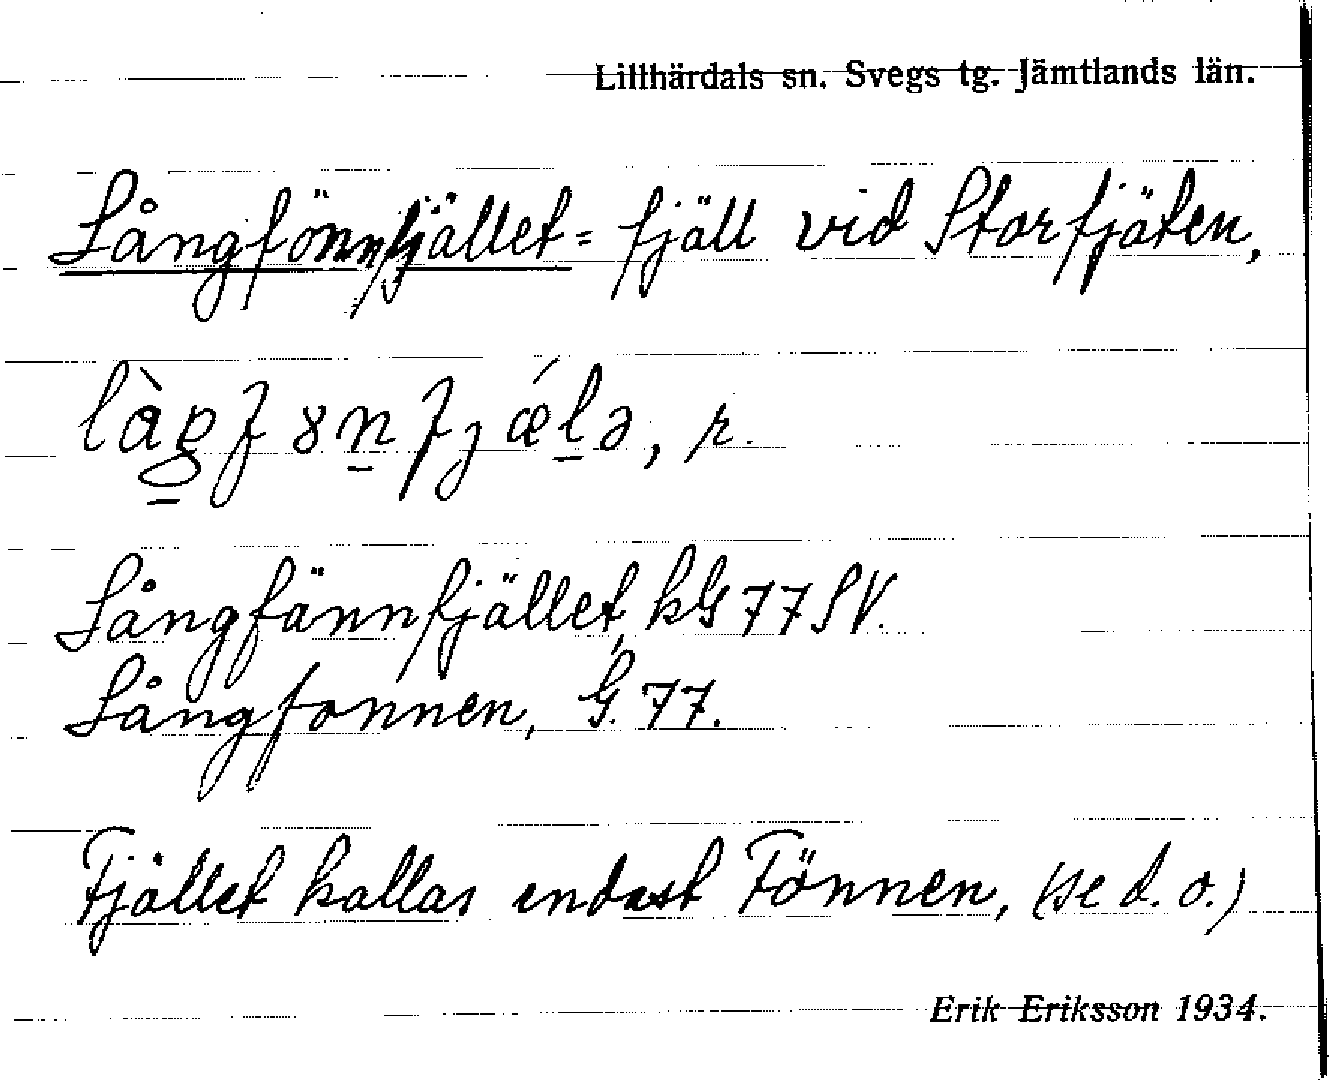 Lillhärdals sn. Svegs tg. Jämtlands län.
Långfönnfjället = fjäll vid Storfjäten,
Långfännfjället, kG 77 SV.
Långfonnen, G. 77.
Fjället kallas endast Fönnen, (se d. o.)
Erik Eriksson 1934.